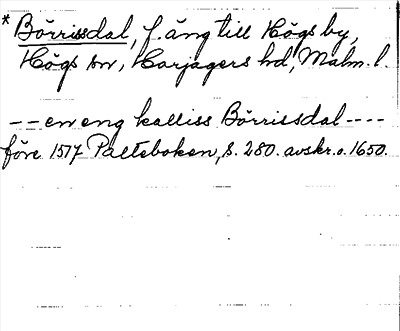 * Börrissdal, f. äng till Högs by,
Högs sn, Harjagers hd, Malm. l.
-- en eng kalliss Börrissdal ----
före 1517 Palteboken, s. 280. avskr. o. 1650.